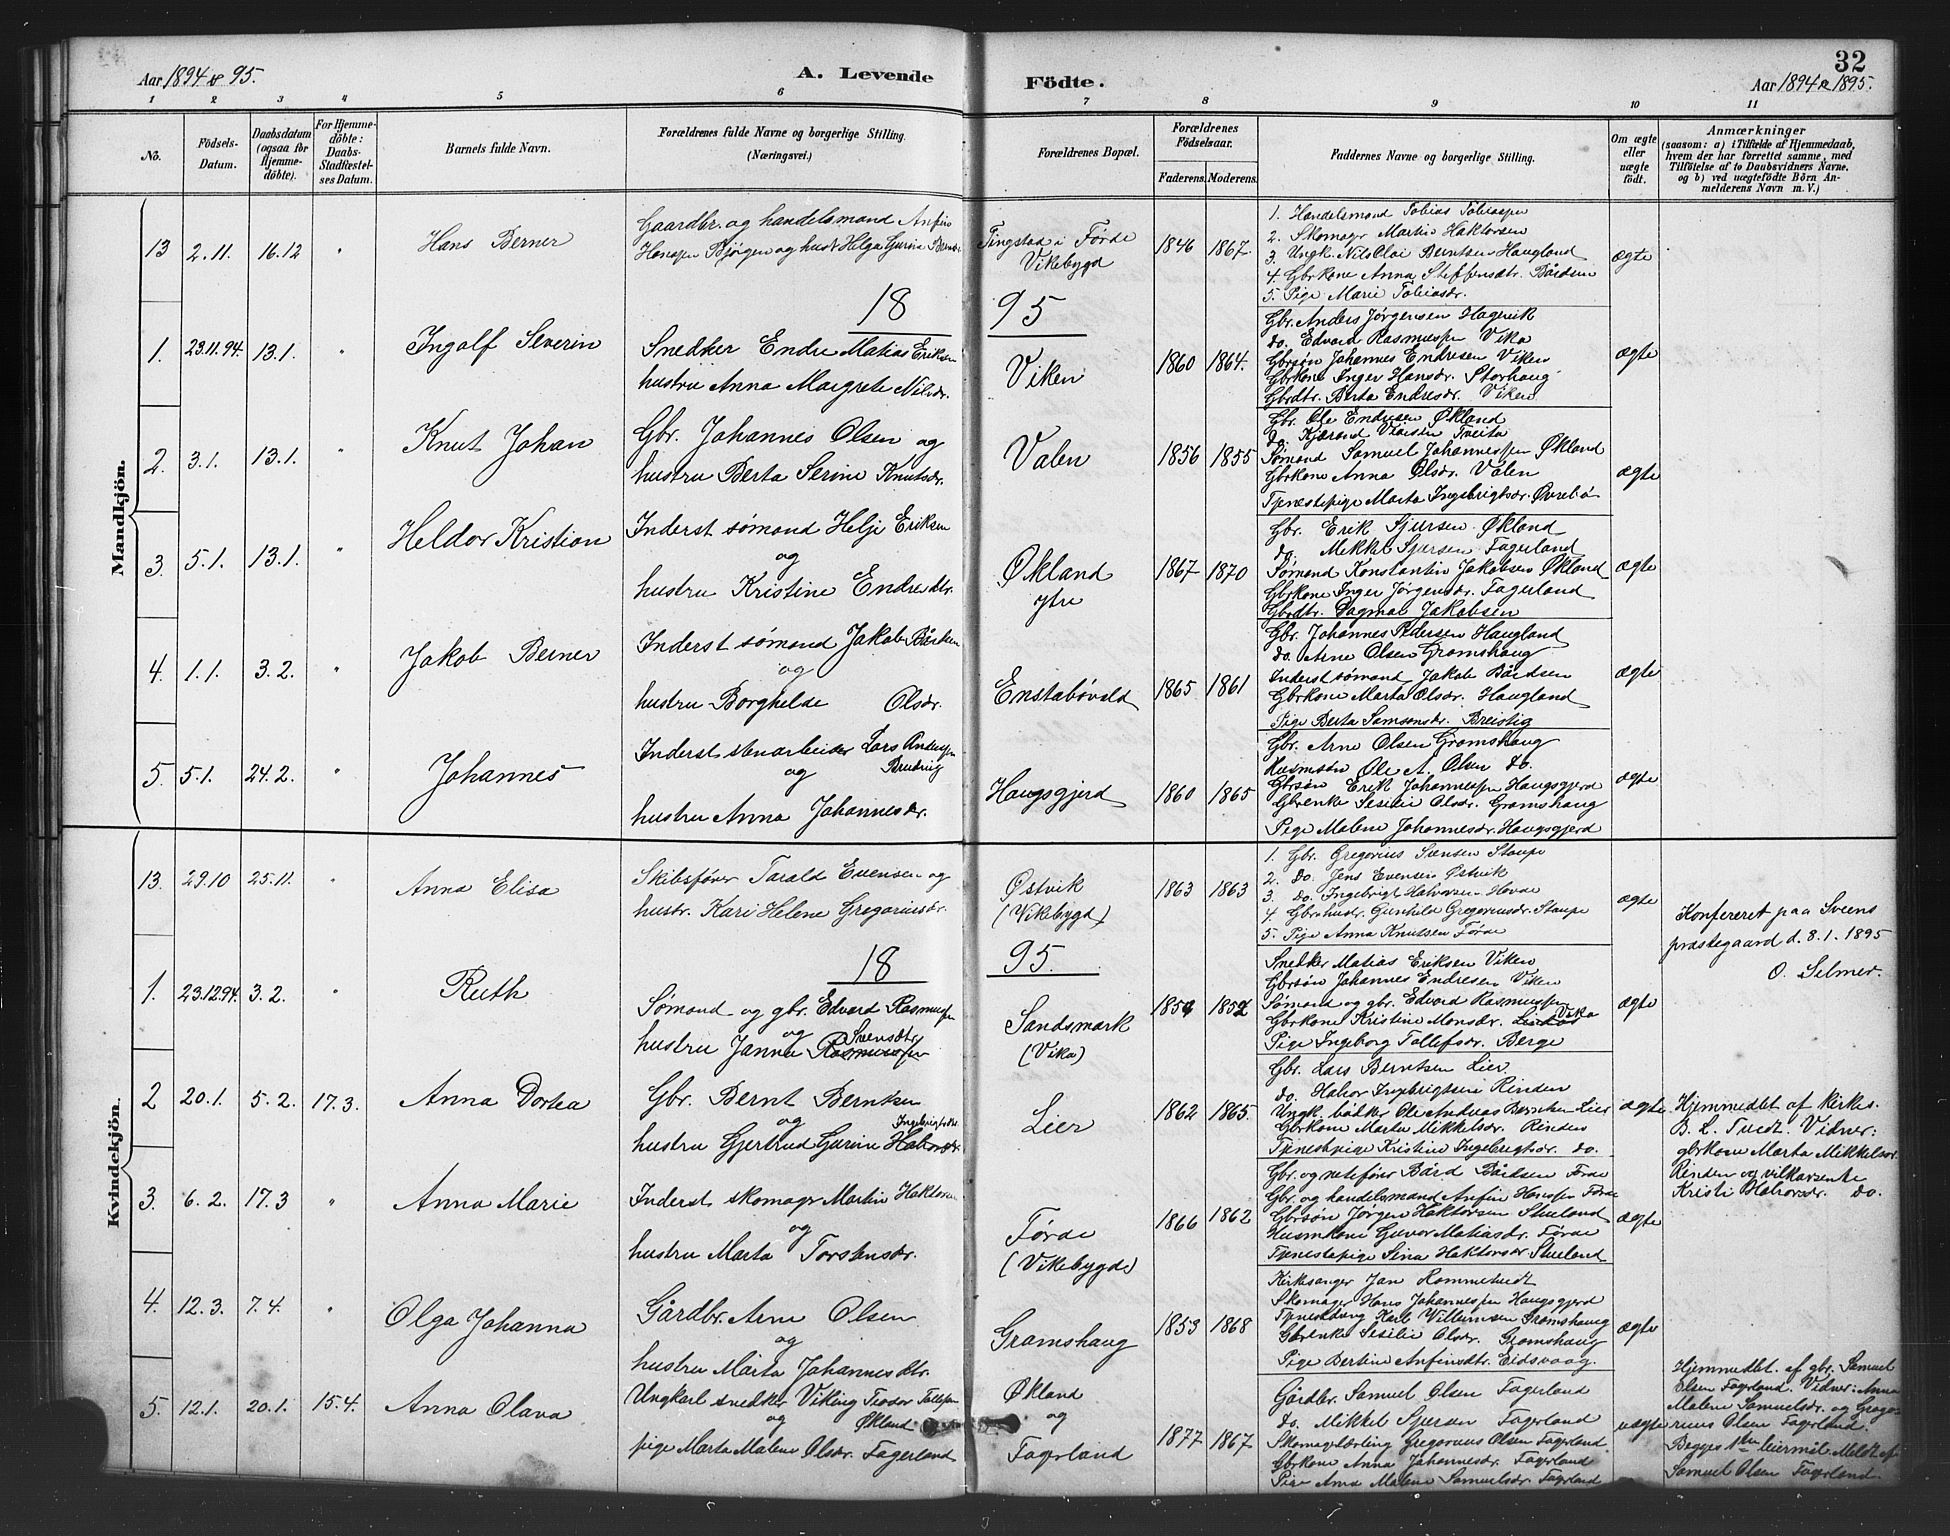 32
Aar 1894 & 95.
A. Levende
Födte.
Aar 1894 & 1895.
1 2 3 4 5 6 7 8 9 10 11
No.
Födsels-Datum.
Daabsdatum (ogsaa for Hjemme-döbte).
For Hjemme-döbte: Daabs-Stadfæstel-ses Datum.
Barnets fulde Navn.
Forældrenes fulde Navne og borgerlige Stilling.
(Næringsvei.)
Forældrenes Bopæl.
Forældrenes Födselsaar.
Faderens. Moderens.
Faddernes Navne og borgerlige Stilling.
Om ægte eller uægte födt.
Anmærkninger
(saasom: a) i Tilfælde af Hjemmedaab,
hvem der har forrettet samme, med
Tilföielse af to Daabsvidners Navne.
og b) ved uægtefödte Börn An-
melderens Navn m. V.)
Mandkjön.
13 2.11. 16.12 " Hans Berner
Gaardbr. og handelsmand Anfin
Hansen Bjørgen og hustr Helga Gurine
Tingstad i Førde
Vikebygd
1846 1867.
1. Handelsmand Tobias Tobiassen
2. Skomagr Martin Haktorsen
3. Ungk. Nils Olai Berntsen Haugland
4. Gbrkone Anna Steffensdtr. Bårdsen
5. Pige Marie Tobiasdr.
ægte
18 95
1. 23.11.94. 13.1. " Ingolf Severin
Snedker Endre Matias Eriksen
hustru Anna Margrete Nilsdr.
Viken
1860 1864.
Gbr. Anders Jørgensen Hagevik
do. Edvard Rasmussen Vika
Gbrsøn Johannes Endresen Viken
Gbrkone Inger Hansdr. Storhaug
Gbrdtr. Berta Endresdr. Viken
ægte
2. 3.1. 13.1. " Knut Johan
Gbr. Johannes Olsen og
hustru Berta Serine Knutsdr.
Valen
1856 1855
Gbr. Ole Endresen Økland
do. Kjærand Tveita
Sømand Samuel Johannessen Økland
Gbrkone Anna Olsdr. Valen
Tjenestepige Marta Ingebrigtsdr. Øvrebø
ægte
3. 5.1. 13.1. " Heldor Kristian
Inderst sømand Helje Eriksen
og
hustru Kristine Endresdtr.
Økland
ytre
1867 1870
Gbr. Erik Sjursen Økland
do. Mikkel Sjursen Fagerland
Sømand Konstantin Jakobsen Økland
Gbrkone Inger Jørgensdr. Fagerland
Gbrdtr. Dagmar Jakobsen
ægte
4. 1.1. 3.2. " Jakob Berner
Inderst sømand Jakob Bårdsen
og
hustru Borghelde Olsdr.
Enstabøvold
1865 1861
Gbr. Johannes Pedersen Haugland
do. Arne Olsen Gramshaug
Inderst sømand Jakob Bårdsen
Gbrkone Marta Olsdr. Haugland
Pige Berta Samsonsdr. Breistig
ægte
5. 5.1. 24.2. " Johannes
Inderst stenarbeider Lars Andersen
og
hustru Anna Johannesdr.
Haugsgjerd
1860 1865
Gbr. Arne Olsen Gramshaug
Husmsøn Ole A. Olsen do.
Gbrsøn Erik Johannessen Haugsgjerd
Gbrenke Sesilie Olsdr. Gramshaug
Pige Malene Johannesdr. Haugsgjerd
ægte
Kvindekjön.
13. 29.10 25.11. " Anna Elisa
Skibsfører Tarald Evensen og
hustr. Kari Helene Gregoriusdr.
Østvik
(Vikebygd)
1863 1863
1. Gbr. Gregorius Svensen Staupe
2. do. Jens Evensen Østvik
3. do. Ingebrigt Halvorsen Hovde
4. Gbrhustr. Gunhild Gregoriusdr. Staupe
5. Pige Anna Knutsen Førde
ægte
Konfereret paa Sveens
præstegaard d. 8.1.1895
O. Selmer.
18 95.
1. 23.12.94. 3.2. " Ruth
Sømand og gbr. Edvard Rasmussen
og Svensdtr
hustru Janna Rasmussen
Sandsmark
(Vika)
1854 1852
Snedker Matias Eriksen Viken
Gbrsøn Johannes Endresen Viken
Sømand og gbr. Edvard Rasmussen
Gbrkone Kristine Monsdr. Vika
Pige Ingeborg Tollefsdr. Berge
ægte
2 20.1. 5.2. 17.3. Anna Dortea
Gbr. Bernt Berntsen
og Ingebrigtsdtr.
hustru Gjertrud Gurine Halvorsdr.
Lier
1862 1865.
Gbr. Lars Berntsen Lier
do. Halvor Ingebrigtsen Rinden
Ungk. bødker Ole Andreas Berntsen Lier
Gbrkone Marta Mikkelsdr. Rinden
Tjenestpige Kristine Ingebrigtsdr. do.
ægte
Hjemmedøbt af kirkes.
B. L. Tvedt. Vidner:
gbrkone Marta Mikkelsdr.
Rinden og vilkarsenke
Kristi Halvorsdr. do.
3. 6.2. 17.3 " Anna Marie
Inderst skomagr Martin Haktorsen
og
hustru Marta Torstensdr.
Førde
(Vikebygd)
1866 1862
Gbr. og notefører Bård Bårdsen Førde
Gbr. og handelsmand Anfin Hansen Førde
Gbrsøn Jørgen Haktorsen Stueland
Husmkone Guvor Matiasdr. Førde
Tjenestepige Sina Haktorsdr Stueland
ægte
4. 12.3. 7.4. " Olga Johanna
Gårdbr. Arne Olsen
og
hustru Marta Johannesdtr.
Gramshaug
1853 1868
Kirkesanger Jan Rommetvedt
Skomager Hans Johannessen Haugsgjerd
Tjenestdreng Karl Villumsen Gramshaug
Gbrenke Sesilie Olsdr. Gramshaug
Pige Bertine Anfinsdtr. Eidsvaag.
ægte
5. 12.1. 20.1. 15.4. Anna Olava
Ungkarl snedker Viking Teodor Tollefsen
og Økland
pige Marta Malene Olsdr. Fagerland
Økland
og
Fagerland
1877 1867
Gårdbr. Samuel Olsen Fagerland
do. Mikkel Sjursen Fagerland
Skomagerlærling Gregorius Olsen Fagerland
Gbrkone Anna Johannesdr. Fagerland
Pige Anna Malene Samuelsdr. Fagerland
uægte
Hjemmedøbt af gbr. Samuel
Olsen Fagerland. Vidner: Anna
Malene Samuelsdr. og Grego-
rius Olsen Fagerland.
Begges 1ste leiermål. Meldt af
Samuel Olsen Fagerland.